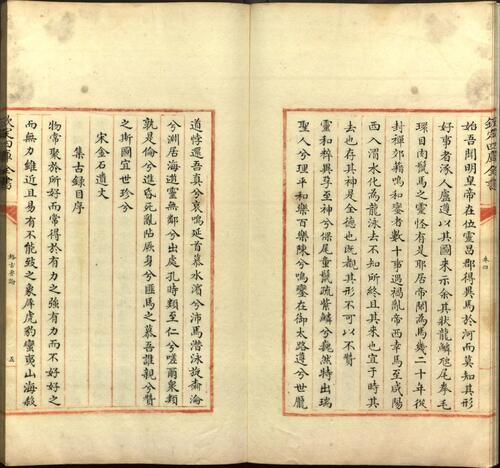 始吾聞明皇帝在位靈昌郡得異馬於河而莫知其形
好事者涿人盧遵以其圖来示余其狀龍鱗虺尾拳毛
環目肉鬛馬之靈怪有是耶居帝閑為馬幾二十年從
封禪郊籍鳴和鑾者數十事遇禍亂帝西幸馬至咸陽
西入渭水化為龍泳去不知所終且其来也宜于時其
去也存其神是全德也既覩其形不可以不贊
靈和粹異孕至神兮倮尾童鬛疏紫鱗兮巍然特出瑞
聖人兮理平和樂百樂陳兮鳴鑾在御太路遵兮世龎
卷四
道悖還吾真兮哀鳴延首慕水濱兮沛馬潛泳旋齋淪
兮淵居海遊靈無鄰兮出處孔時類至仁兮嗟爾衆類
孰是倫兮進昏死亂陷厥身兮匪馬之慕吾誰親兮贊
之斯圖宜世珍兮
宋金石遺文
集古録目序
物常聚於所好而常得於有力之強有力而不好好之
而無力雖近且易有不能致之象犀虎豹蠻夷山海殺
欽定四庫全書
格古要論
五